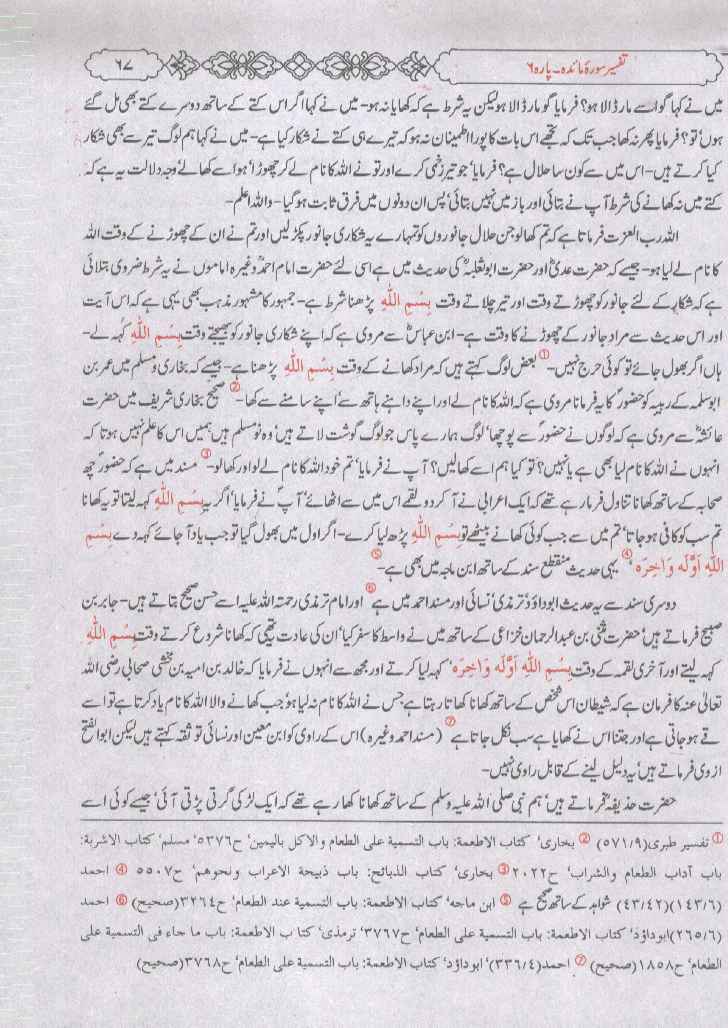 تفسیر سورۂ مائدہ۔ پارہ ۶
۶۷
میں نے کہا گو اسے مار ڈالا ہو؟ فرمایا گو مار ڈالا ہو لیکن یہ شرط ہے کہ کھایا نہ ہو- میں نے کہا اگر اس کتے کے ساتھ دوسرے کتے بھی مل گئے
ہوں تو؟ فرمایا پھر نہ کھا جب تک کہ تجھے اس بات کا پورا اطمینان نہ ہو کہ تیرے ہی کتے نے شکار کیا ہے- میں نے کہا ہم لوگ تیر سے بھی شکار
کیا کرتے ہیں- اس میں سے کون سا حلال ہے؟ فرمایا' جو تیر زخمی کرے اور تو نے اللہ کا نام لے کر چھوڑا ہو اسے کھا لے' وجہ دلالت یہ ہے کہ
کتے میں نہ کھانے کی شرط آپ نے بتائی اور باز میں نہیں بتائی' پس ان دونوں میں فرق ثابت ہو گیا- واللہ اعلم-
اللہ رب العزت فرماتا ہے کہ تم کھا لو جن حلال جانوروں کو تمہارے یہ شکاری جانور پکڑ لیں اور تم نے ان کے چھوڑنے کے وقت اللہ
کا نام لے لیا ہو- جیسے کہ حضرت عدیؓ اور حضرت ابو ثعلبہؓ کی حدیث میں ہے اسی لئے حضرت امام احمدؒ وغیرہ اماموں نے یہ شرط ضروری بتلائی
ہے کہ شکار کے لئے جانور کو چھوڑتے وقت اور تیر چلاتے وقت بِسْمِ اللّٰهِ پڑھنا شرط ہے- جمہور کا مشہور مذہب بھی یہی ہے کہ اس آیت
اور اس حدیث سے مراد جانور کے چھوڑنے کا وقت ہے- ابن عباسؓ سے مروی ہے کہ اپنے شکاری جانور کو بھیجتے وقت بِسْمِ اللّٰهِ کہہ لے-
ہاں اگر بھول جائے تو کوئی حرج نہیں- ① بعض لوگ کہتے ہیں کہ مراد کھانے کے وقت بِسْمِ اللّٰهِ پڑھنا ہے- جیسے کہ بخاری و مسلم میں عمر بن
ابو سلمہ کے ربیبہ کو حضورؐ کا یہ فرمانا مروی ہے کہ اللہ کا نام لے اور اپنے داہنے ہاتھ سے' اپنے سامنے سے کھا- ② صحیح بخاری شریف میں حضرت
عائشہؓ سے مروی ہے کہ لوگوں نے حضورؐ سے پوچھا' لوگ ہمارے پاس جو لوگ گوشت لاتے ہیں' وہ نو مسلم ہیں ہمیں اس کا علم نہیں ہوتا کہ
انہوں نے اللہ کا نام لیا بھی ہے یا نہیں؟ تو کیا ہم اسے کھا لیں؟ آپ نے فرمایا' تم خود اللہ کا نام لے لو اور کھا لو- ③ مسند میں ہے کہ حضورؐ چھ
صحابہ کے ساتھ کھانا تناول فرما رہے تھے کہ ایک اعرابی نے آ کر دو لقمے اس میں سے اٹھائے' آپؐ نے فرمایا' اگر یہ بِسْمِ اللّٰهِ کہہ لیتا تو یہ کھانا
تم سب کو کافی ہو جاتا' تم میں سے جب کوئی کھانے بیٹھے تو بِسْمِ اللّٰهِ پڑھ لیا کرے- اگر اول میں بھول گیا تو جب یاد آ جائے کہہ دے بِسْمِ
اللّٰهِ اَوَّلَه وَاٰخِرَه' ④ یہی حدیث منقطع سند کے ساتھ ابن ماجہ میں بھی ہے- ⑤
دوسری سند سے یہ حدیث ابوداؤد' ترمذی' نسائی اور مسند احمد میں ہے ⑥ اور امام ترمذی رحمتہ اللہ علیہ اسے حسن صحیح بتاتے ہیں- جابر بن
صبیح فرماتے ہیں' حضرت مثنیٰ بن عبد الرحمان خزاعی کے ساتھ میں نے واسط کا سفر کیا' ان کی عادت یہ تھی کہ کھانا شروع کرتے وقت بِسْمِ اللّٰهِ
کہہ لیتے اور آخری لقمہ کے وقت بِسْمِ اللّٰهِ اَوَّلَه وَاٰخِرَه' کہہ لیا کرتے اور مجھ سے انہوں نے فرمایا کہ خالد بن امیہ بن مخشی صحابی رضی اللہ
تعالیٰ عنہ کا فرمان ہے کہ شیطان اس شخص کے ساتھ کھانا کھاتا رہتا ہے جس نے اللہ کا نام نہ لیا ہو' جب کھانے والا اللہ کا نام یاد کرتا ہے تو اسے
قے ہو جاتی ہے اور جتنا اس نے کھایا ہے سب نکل جاتا ہے ⑦ (مسند احمد وغیرہ) اس کے راوی کو ابن معین اور نسائی تو ثقہ کہتے ہیں لیکن ابو الفتح
ازدی فرماتے ہیں' یہ دلیل لینے کے قابل راوی نہیں-
حضرت حذیفہؓ فرماتے ہیں' ہم نبی صلی اللہ علیہ وسلم کے ساتھ کھانا کھا رہے تھے کہ ایک لڑکی گرتی پڑتی آئی' جیسے کوئی اسے
① تفسیر طبری(۵۷۱/۹) ② بخاری' کتاب الاطعمة: باب التسمیة علی الطعام والاکل بالیمین' ح۵۳۷۶' مسلم' کتاب الاشربة:
باب آداب الطعام والشراب' ح۲۰۲۲ ③ بخاری' کتاب الذبائح: باب ذبیحة الاعراب ونحوهم' ح۵۵۰۷ ④ احمد
(۱۴۳/۶)(۴۳/۴۲) شواہد کے ساتھ صحیح ہے ⑤ ابن ماجه' کتاب الاطعمة: باب التسمیة عند الطعام' ح۳۲۶۴(صحیح) ⑥ احمد
(۲۶۵/۶)ابوداؤد' کتاب الاطعمة: باب التسمیة علی الطعام' ح۳۷۶۷' ترمذی' کتاب الاطعمة: باب ما جاء فی التسمیة علی
الطعام' ح۱۸۵۸(صحیح) ⑦ احمد(۳۳۶/۴)' ابوداؤد' کتاب الاطعمة: باب التسمیة علی الطعام' ح۳۷۶۸(صحیح)